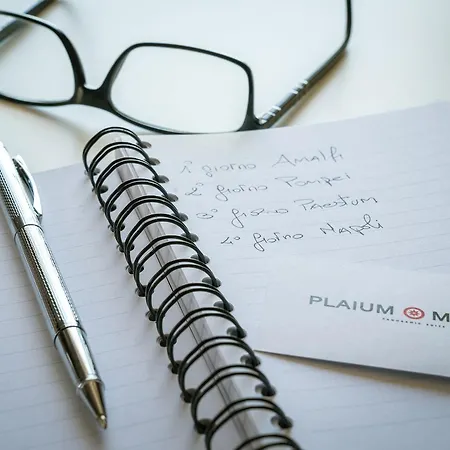 1° giorno Amalfi
2° giorno Pompei
3° giorno Paestum
4° giorno Napoli
PLAIUM M
PANORAMIC SUITE